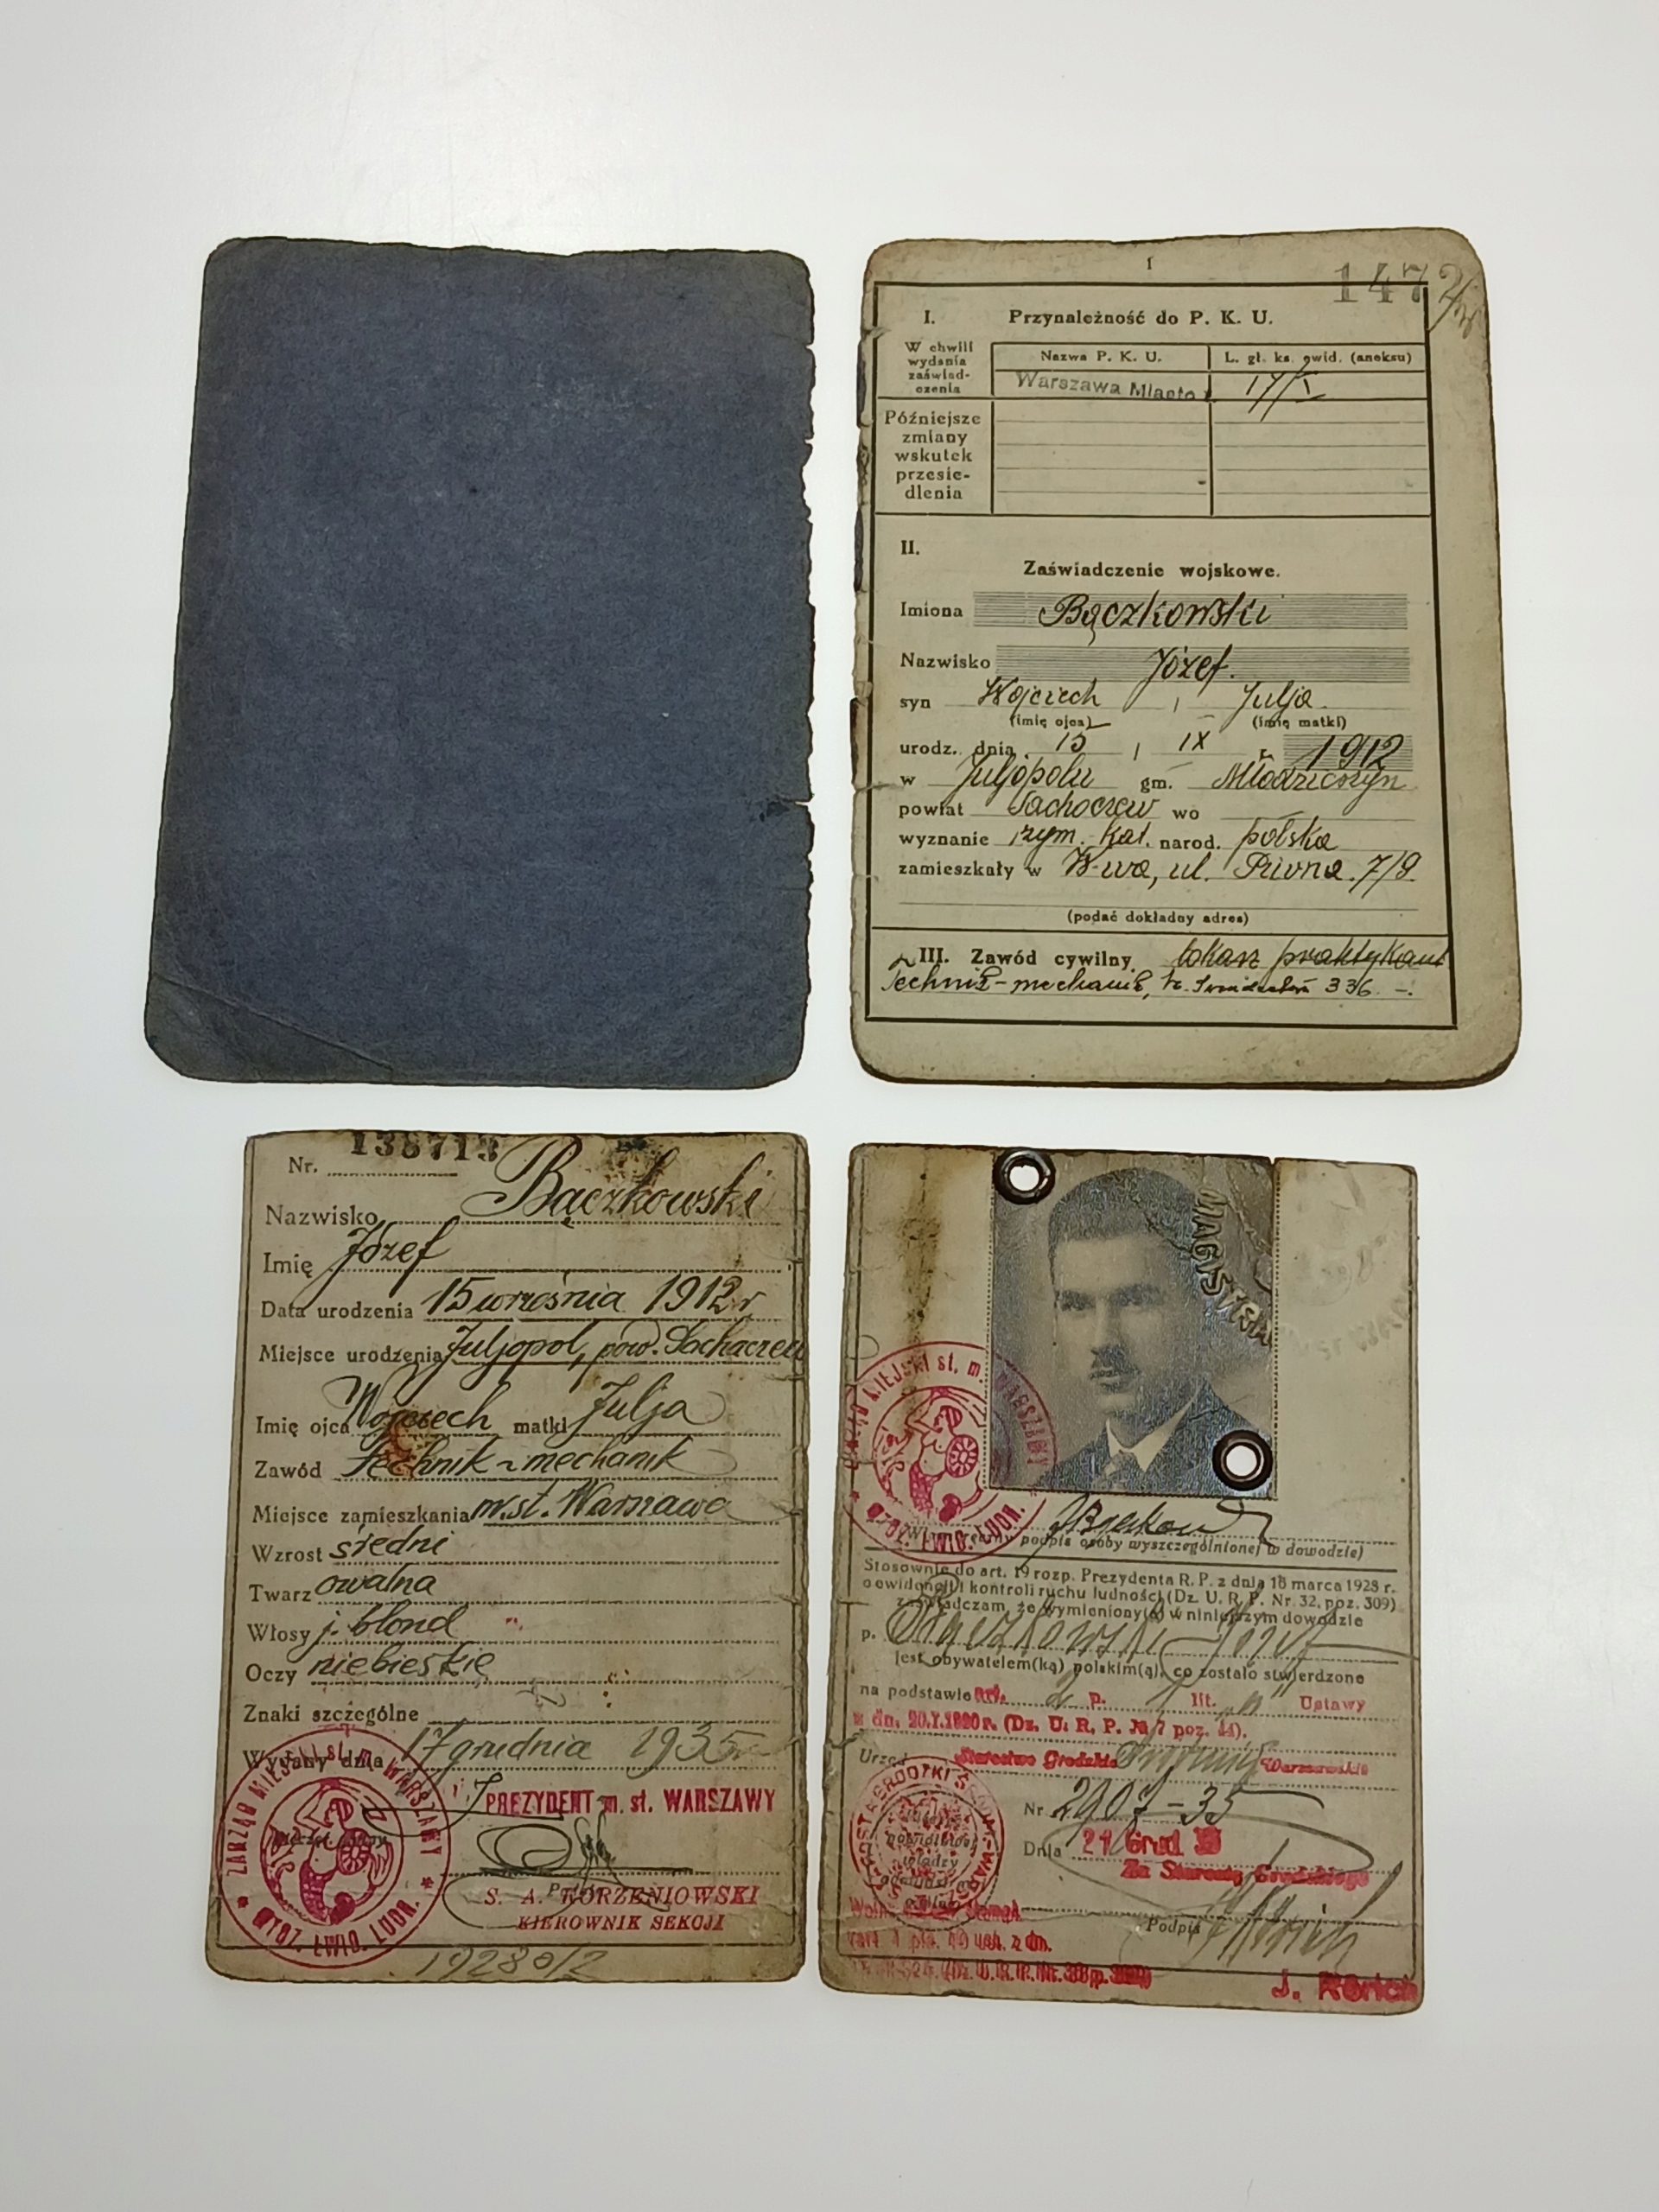 1
1472
I. Przynależność do P. K. U.
W chwili wydania zaświad-czenia
Nazwa P. K. U.
L. gł. ks. ewid. (aneksu)
Warszawa Miasto
17/I
Późniejsze
zmiany
wskutek
przesie-
dlenia
II.
Zaświadczenie wojskowe.
Imiona Bączkowski
Nazwisko Józef.
syn Wojciech i Julja
(imię ojca) (imię matki)
urodz. dnia 15 IX r. 1912
w Juljopolu gm. Młodzieszyn
powiat Sochaczew wo
wyznanie rzym. kat. narod. polska
zamieszkały w W-wa, ul. Piwna 7/9
(podać dokładny adres)
III. Zawód cywilny tokarz praktykant
technik-mechanik, 336 -.
Nr. 138713
Nazwisko Bączkowski
Imię Józef
Data urodzenia 15 września 1912 r
Miejsce urodzenia Juljopol, pow. Sochaczew
Imię ojca Wojciech matki Julja
Zawód technik-mechanik
Miejsce zamieszkania m. st. Warszawa
Wzrost średni
Twarz owalna
Włosy j. blond
Oczy niebieskie
Znaki szczególne
Wydany dnia 17 grudnia 1935 r.
PREZYDENT m. st. WARSZAWY
ZARZĄD MIEJSKI st. m. WARSZAWY
Podpis
S. A. KORZENIOWSKI
KIEROWNIK SEKCJI
MAGISTRAT
ZARZĄD MIEJSKI st. m. WARSZAWY
(Własnoręczny podpis osoby wyszczególnionej w dowodzie)
Stosownie do art. 19 rozp. Prezydenta R. P. z dnia 16 marca 1928 r.
o ewidencji i kontroli ruchu ludności (Dz. U. R. P. Nr. 32, poz. 309)
zaświadczam, że wymieniony(a) w niniejszym dowodzie
p. Bączkowski Józef
jest obywatelem(ką) polskim(ą), co zostało stwierdzone
na podstawie art. 2 p. 1 lit. "a" Ustawy
z dn. 20.I.1920 r. (Dz. U. R. P. № 7 poz. 44).
Urząd Starostwo Grodzkie Warszawskie
Nr 2907-35
Dnia 21 Grud 35
Za Starostę Grodzkiego
Podpis